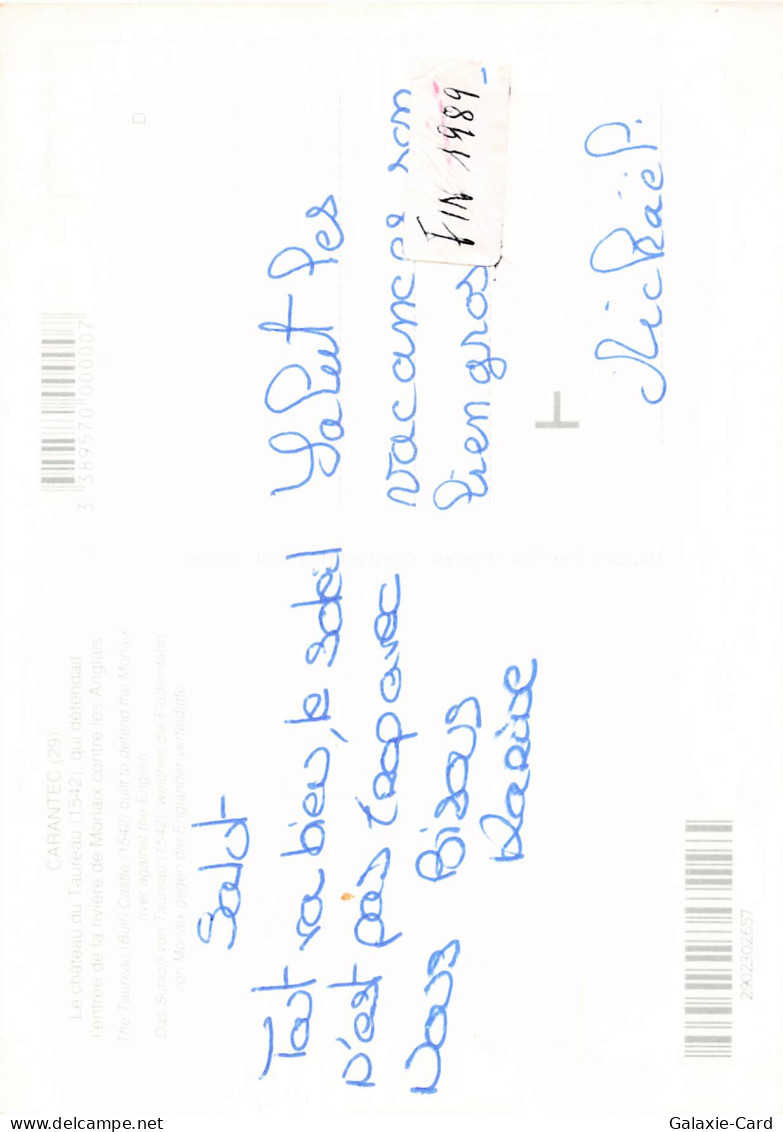 CARANTEC (29)
Le château du Taureau (1542), qui défendait
l'entrée de la rivière de Morlaix contre les Anglais
The Taureau (Bull) Castle (1542) built to defend the Morlaix
river against the English
Das Schloß von Taureau (1542), welches die Flußeinfahrt
von Morlaix gegen die Engländer verteidigte
3 389570 000007
D
Salut
Tout va bien, le soleil
n'est pas trop avec
nous Bisous
Karine
Salut les
vacances son
bien gros
FIN 1989
Mickaël P.
2902302657
delcampe.net
Galaxie-Card